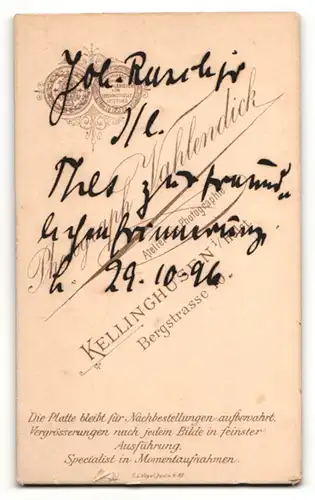 Joh. Ruschjr
s/l.
Thes zur freund-
lichen Erinnerung.
d. 29.10.96.
Photograph Vahlendick
Atelier Photographie
KELLINGHUSEN i/Holst.
Bergstrasse
Die Platte bleibt für Nachbestellungen aufbewahrt.
Vergrösserungen nach jedem Bilde in feinster
Ausführung.
Specialist in Momentaufnahmen.